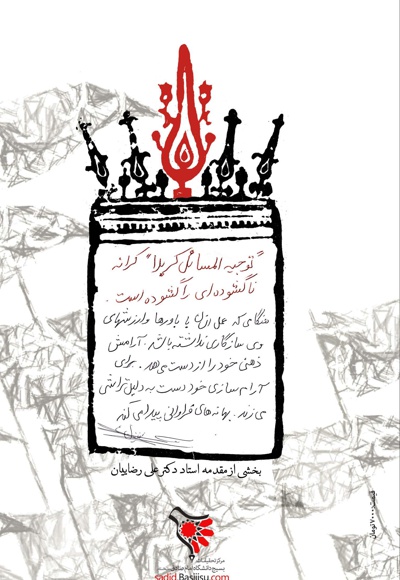 "توجیه المسائل کربلا" کرانه
ناگشوده‌ای را گشوده است.
هنگامی که عمل انسان با باورها و ارزشهای
وی سازگاری نداشته باشد، آرامش
ذهنی خود را از دست می‌دهد. برای
آرام سازی خود دست به دلیل تراشی
می‌زند. بهانه‌های فراوانی پیدا می‌کند
بخشی از مقدمه استاد دکتر علی رضاییان
قیمت: ۷۰۰۰ تومان
مرکز تحقیقات
بسیج دانشگاه امام صادق
sadid.Basijisu.com